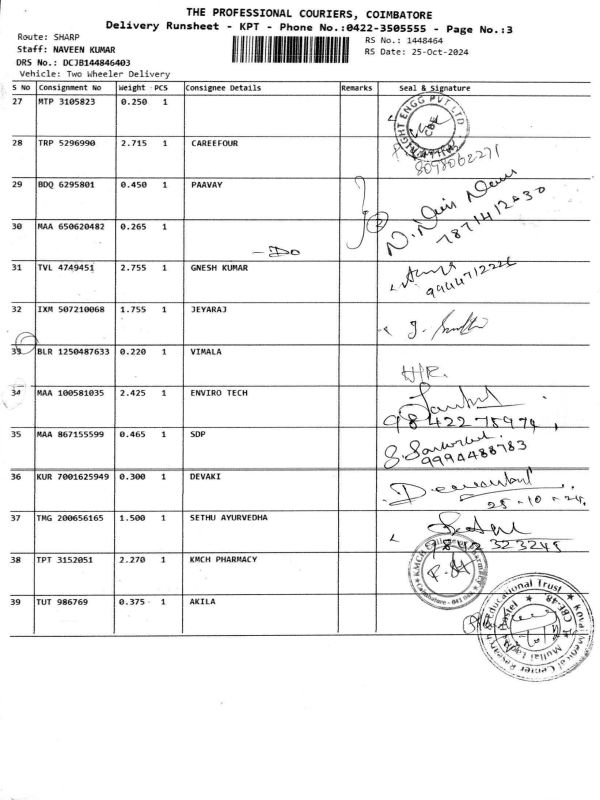 THE PROFESSIONAL COURIERS, COIMBATORE
Delivery Runsheet - KPT - Phone No.:0422-3505555 - Page No.:3
Route: SHARP
RS No.: 1448464
Staff: NAVEEN KUMAR
RS Date: 25-Oct-2024
DRS No.: DCJB144846403
Vehicle: Two Wheeler Delivery
S No Consignment No Weight PCS Consignee Details Remarks Seal & Signature
27 MTP 3105823 0.250 1
28 TRP 5296990 2.715 1 CAREEFOUR
8098062271
29 BDQ 6295801 0.450 1 PAAVAY
30 MAA 650620482 0.265 1
2
-Do
31 TVL 4749451 2.755 1 GNESH KUMAR
9944712226
32 IXM 507210068 1.755 1 JEYARAJ
33 BLR 1250487633 0.220 1 VIMALA
H/R.
34 MAA 100581035 2.425 1 ENVIRO TECH
35 MAA 867155599 0.465 1 SDP
9994488783
36 KUR 7001625949 0.300 1 DEVAKI
25-10-24.
37 TMG 200656165 1.500 1 SETHU AYURVEDHA
38 TPT 3152051 2.270 1 KMCH PHARMACY
39 TUT 986769 0.375 1 AKILA